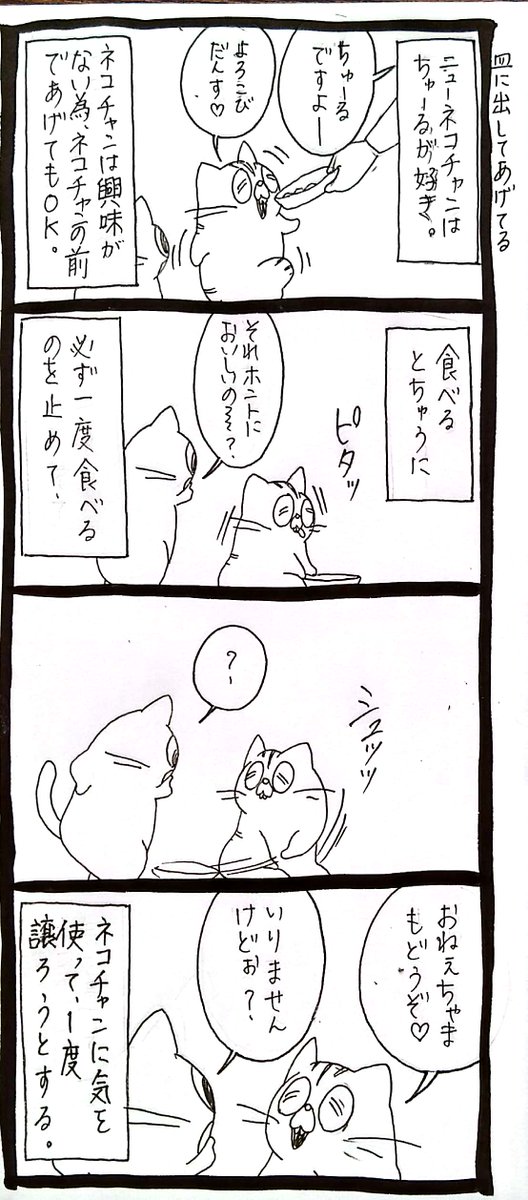 皿に出してあげてる
ニューネコチャンは
ちゅ～るが好き。
ちゅーる
ですよー
よろこび
だんす♡
ネコチャンは興味が
ない為、ネコチャンの前
であげてもOK。
食べる
とちゅうに
ピタッ
それホントに
おいしいのぉ?
必ず一度食べる
のを止めて、
?
シュッッ
おねぇちゃま
もどうぞ♡
いりません
けどぉ?
ネコチャンに気を
使って、1度
譲ろうとする。